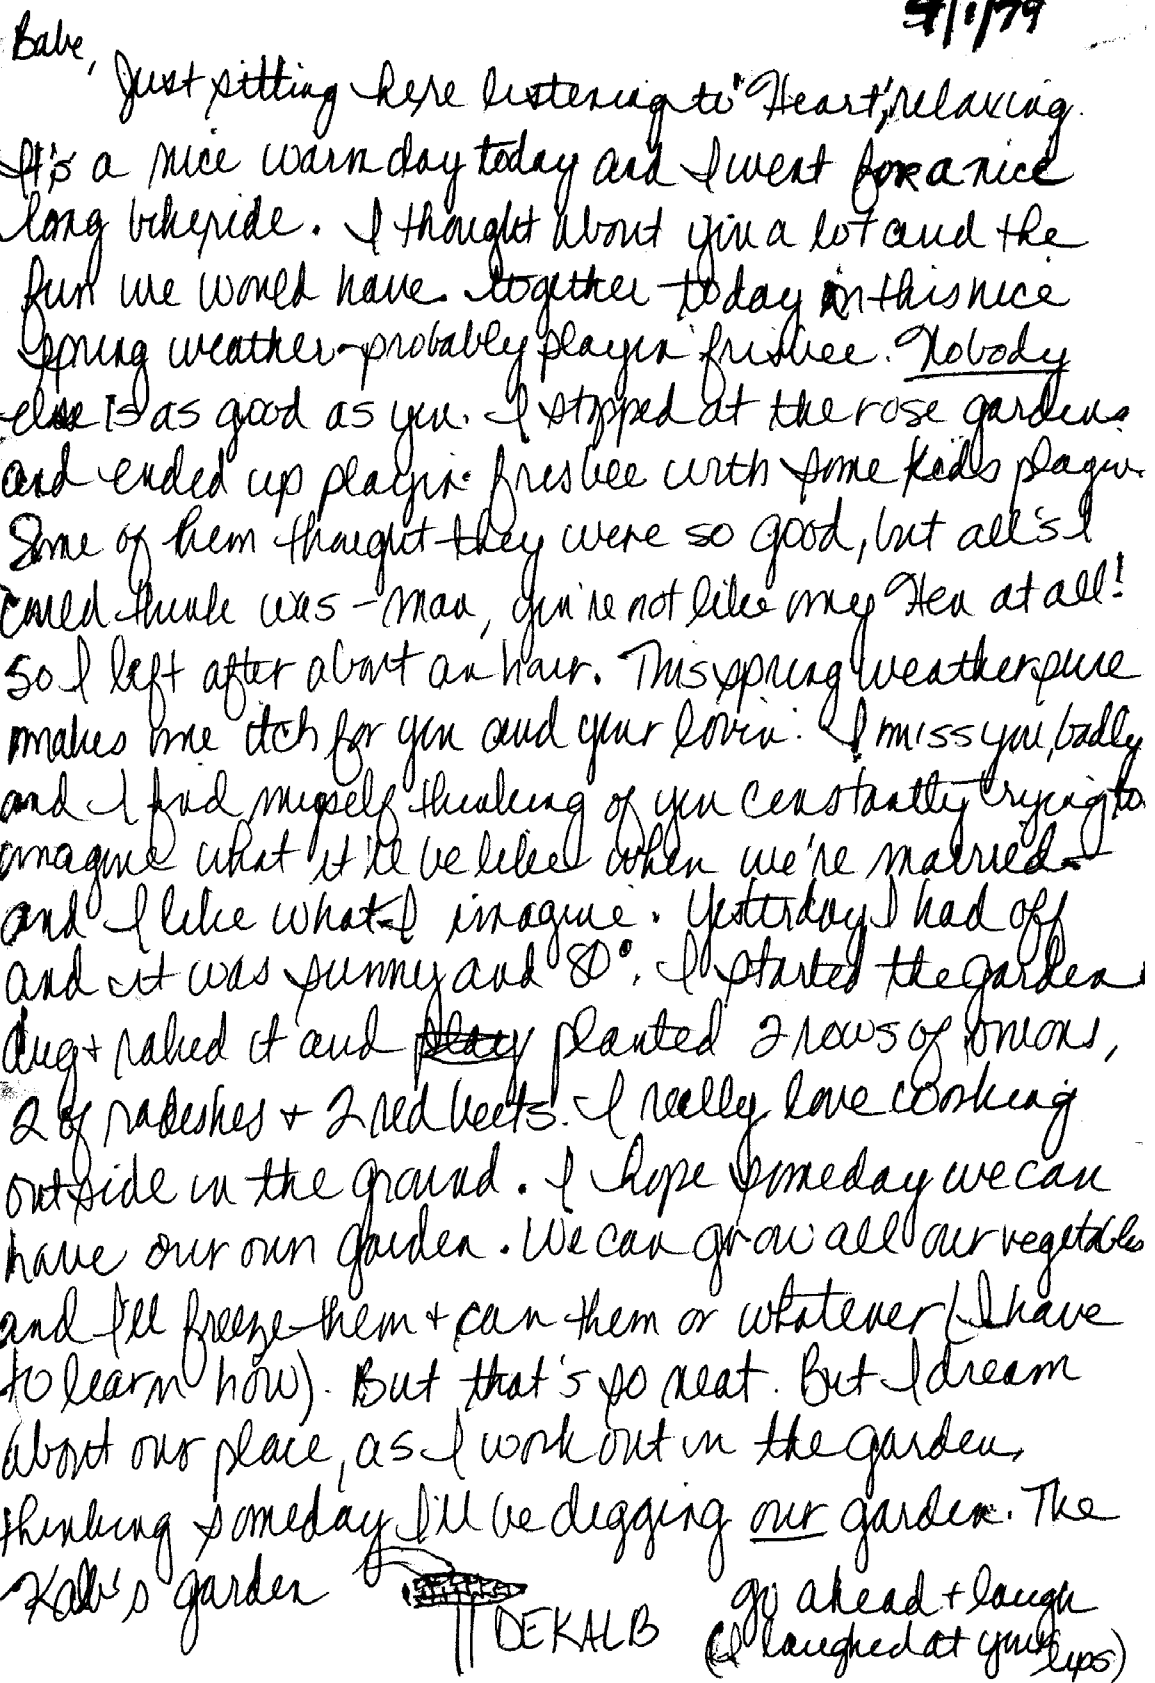 5/1/79
Babe,
Just sitting here listening to "Heart", relaxing.
It's a nice warm day today and I went for a nice
long bikeride. I thought about you a lot and the
fun we would have together today in this nice
spring weather - probably playin' frisbee. Nobody
else is as good as you. I stopped at the rose gardens
and ended up playin' frisbee with some kids playin'.
Some of them thought they were so good, but all's I
could think was - man, you're not like my Hen at all!
So I left after about an hour. This spring weather sure
makes me itch for you and your lovin'. I miss you, badly
and I find myself thinking of you constantly trying to
imagine what it'll be like when we're married -
and I like what I imagine. Yesterday I had off
and it was sunny and 80°. I started the garden
dug + raked it and play planted 2 rows of onions,
2 of radishes + 2 red beets. I really love working
outside in the ground. I hope someday we can
have our own garden. We can grow all our vegetables
and I'll freeze them + can them or whatever (I have
to learn how). But that's so neat. But I dream
about our place, as I work out in the garden,
thinking someday I'll be digging our garden. The
Kalb's garden
DEKALB
go ahead + laugh
(I laughed at your lips)